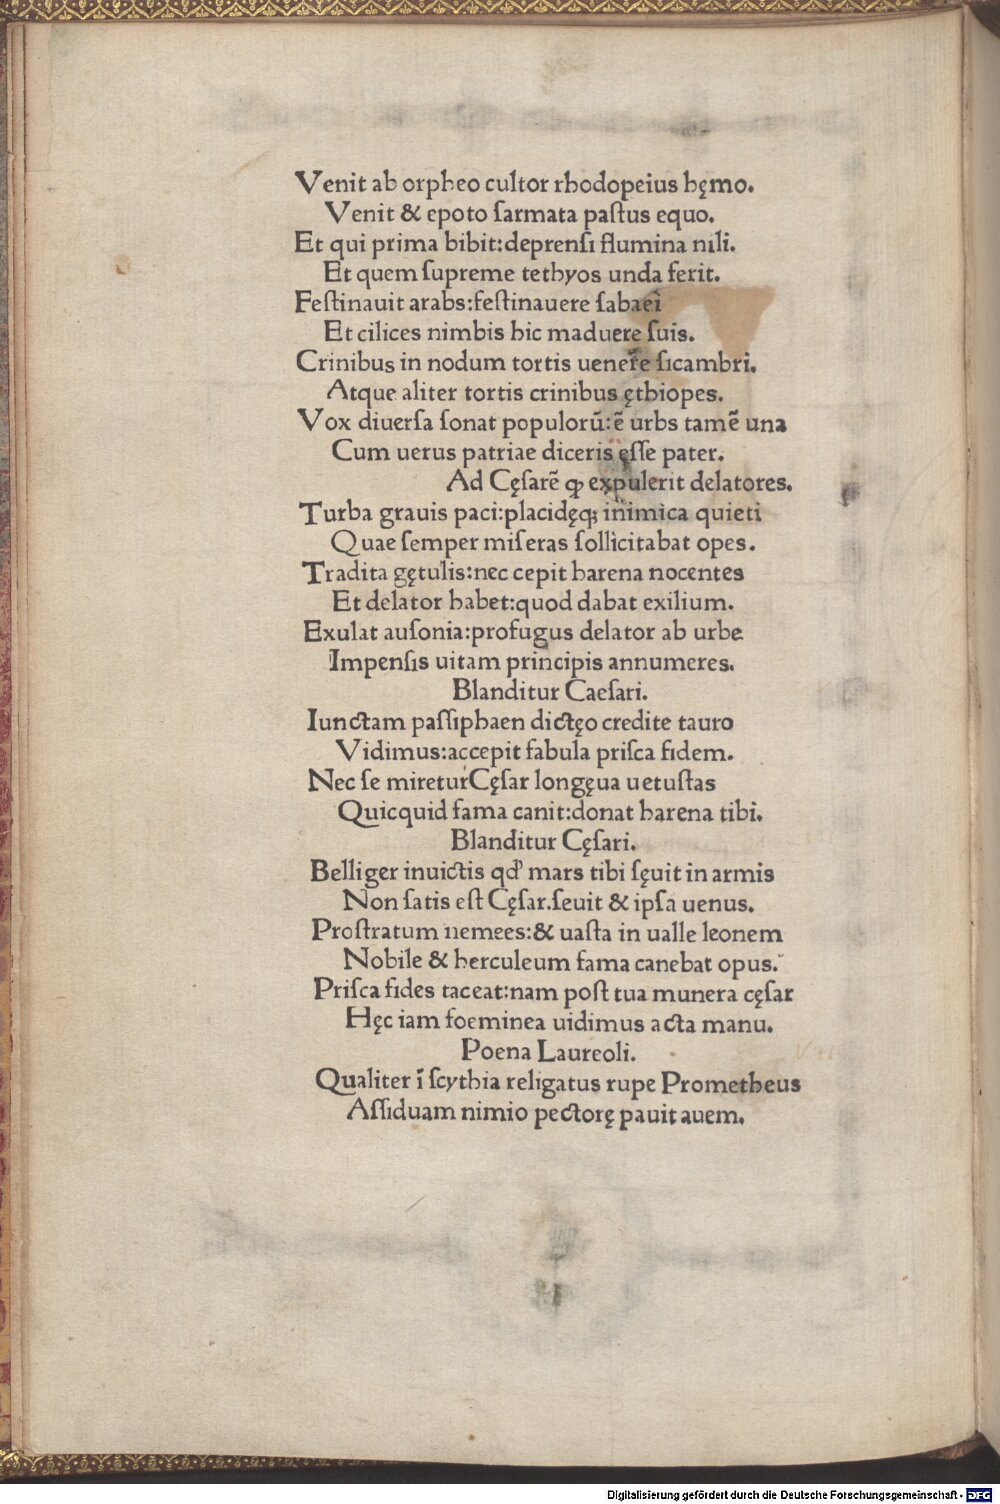 Venit ab orpheo cultor rhodopeius hęmo.
Venit & epoto ſarmata paſtus equo.
Et qui prima bibit:deprenſi flumina nili.
Et quem ſupreme tethyos unda ferit.
Feſtinauit arabs:feſtinauere ſabaei
Et cilices nimbis hic maduere ſuis.
Crinibus in nodum tortis uenere ſicambri.
Atque aliter tortis crinibus ęthiopes.
Vox diuerſa ſonat populorū:ē urbs tamē una
Cum uerus patriae diceris eſſe pater.
Ad Cęſarē ꝙ expulerit delatores.
Turba grauis paci:placidęqꝫ inimica quieti
Quae ſemper miſeras ſollicitabat opes.
Tradita gętulis:nec cepit harena nocentes
Et delator habet:quod dabat exilium.
Exulat auſonia:profugus delator ab urbe
Impenſis uitam principis annumeres.
Blanditur Caeſari.
Iunctam paſſiphaen dictęo credite tauro
Vidimus:accepit fabula priſca fidem.
Nec ſe miretur Cęſar longęua uetuſtas
Quicquid fama canit:donat harena tibi.
Blanditur Cęſari.
Belliger inuictis qd' mars tibi ſęuit in armis
Non ſatis eſt Cęſar.ſeuit & ipſa uenus.
Proſtratum nemees:& uaſta in ualle leonem
Nobile & herculeum fama canebat opus.
Priſca fides taceat:nam poſt tua munera cęſar
Hęc iam foeminea uidimus acta manu.
Poena Laureoli.
Qualiter ī ſcythia religatus rupe Prometheus
Aſſiduam nimio pectorę pauit auem.
Digitalisierung gefördert durch die Deutsche Forschungsgemeinschaft - DFG